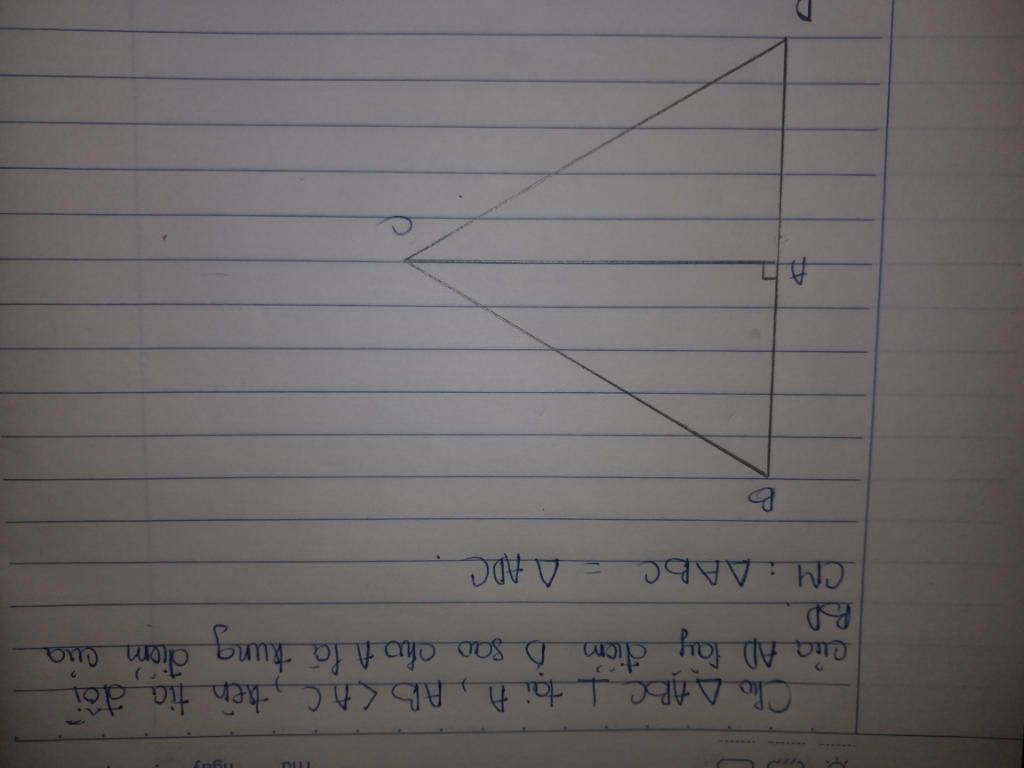 Thứ ngày
Cho △ABC ⊥ tại A, AB < AC, trên tia đối
của AD lấy điểm D sao cho A là trung điểm của
BD.
CM : △ABC = △ADC.
B
A
C
D